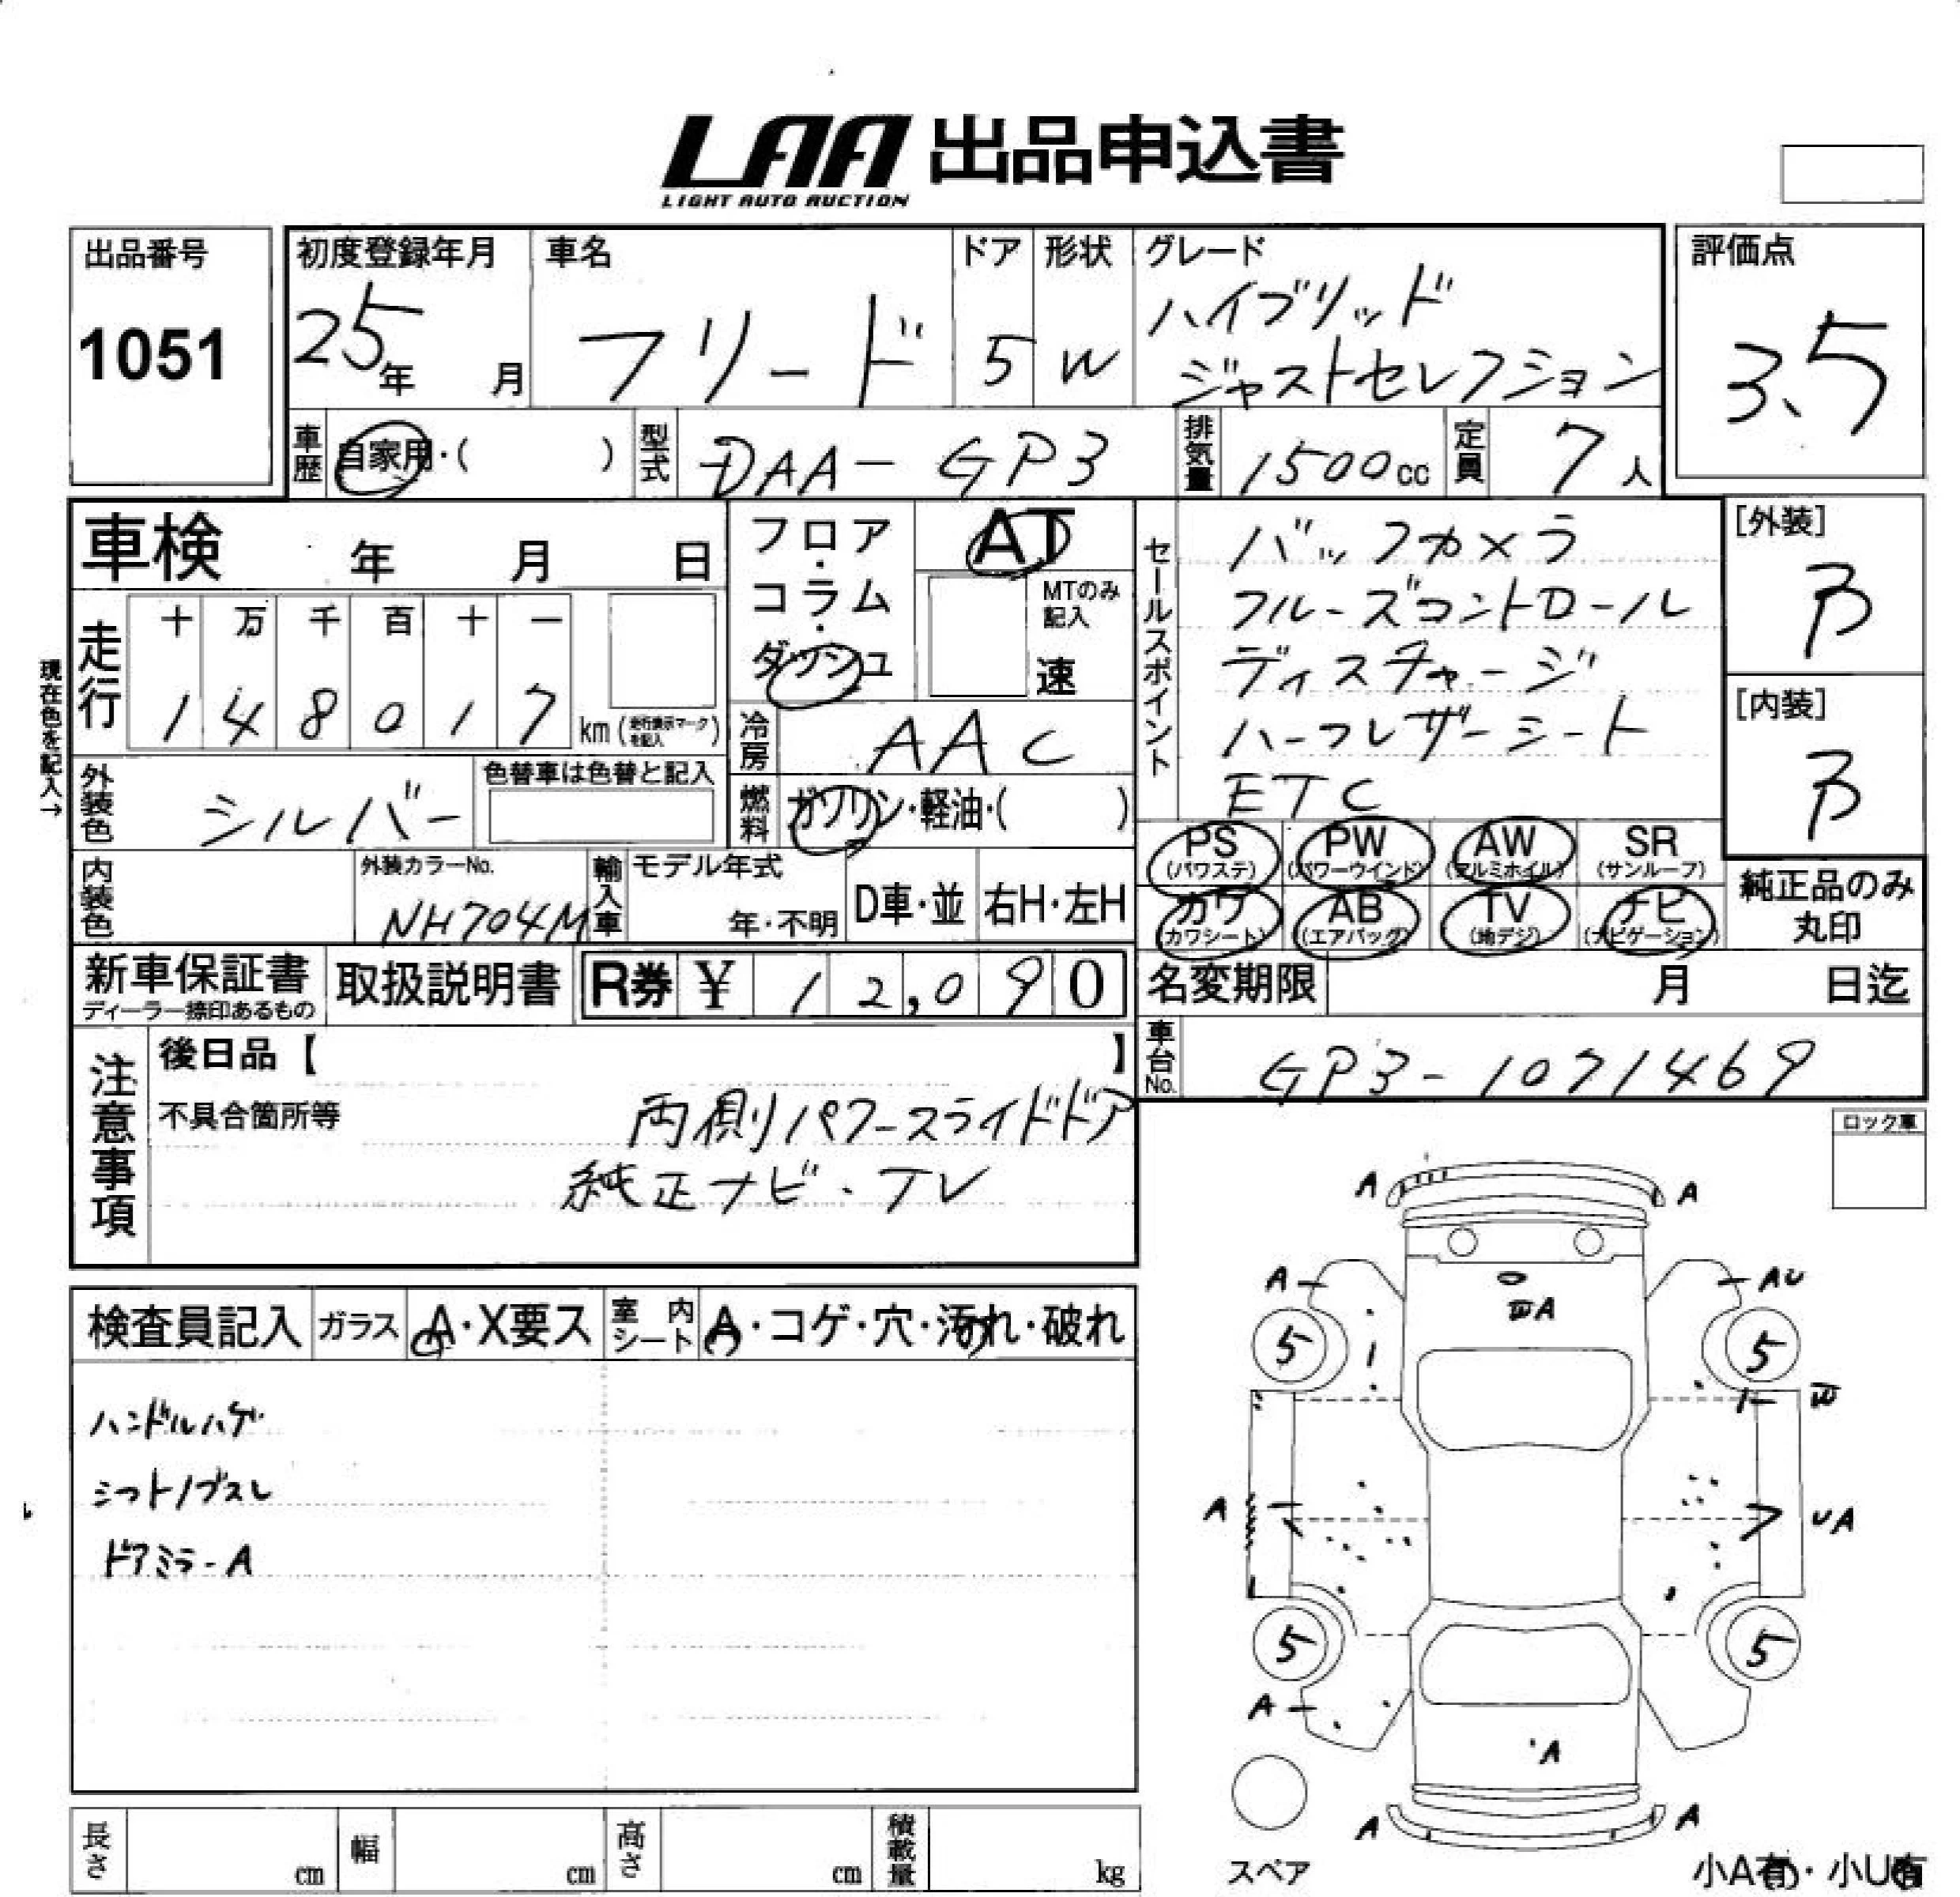 LAA 出品申込書
LIGHT AUTO AUCTION
出品番号
1051
初度登録年月
25年 月
車名
フリード
ドア
5
形状
W
グレード
ハイブリッド
ジャストセレクション
評価点
3.5
車歴 自家用・( )
型式 DAA-GP3
排気量 1500cc
定員 7人
車検 年 月 日
フロア・コラム・ダッシュ
AT
MTのみ記入
速
セールスポイント
バックカメラ
クルーズコントロール
ディスチャージ
ハーフレザーシート
ETC
[外装]
B
[内装]
B
現在色を記入→
走行
十 万 千 百 十 一
1 4 8 0 1 7 km(走行表示マークを記入)
冷房 AAC
外装色 シルバー
色替車は色替と記入
燃料 ガソリン・軽油・( )
PS (パワステ)
PW (パワーウインド)
AW (アルミホイル)
SR (サンルーフ)
カワ (カワシート)
AB (エアバッグ)
TV (地デジ)
ナビ (ナビゲーション)
純正品のみ丸印
内装色
外装カラーNo.
NH704M
輸入車
モデル年式
年・不明
D車・並
右H・左H
新車保証書
ディーラー捺印あるもの
取扱説明書
R券 ¥ 12,090
名変期限 月 日迄
車台No. GP3-1071469
注意事項
後日品【 】
不具合箇所等
両側パワースライドドア
純正ナビ・TV
ロック車
検査員記入
ガラス A・X要ス
室内シート A・コゲ・穴・汚れ・破れ
ハンドルハゲ
シフトノブスレ
ドアミラーA
A A
A AU
WA
5 5
W
A UA
5 5
A
A
A A
スペア
小A有・小U有
長さ cm
幅 cm
高さ cm
積載量 kg